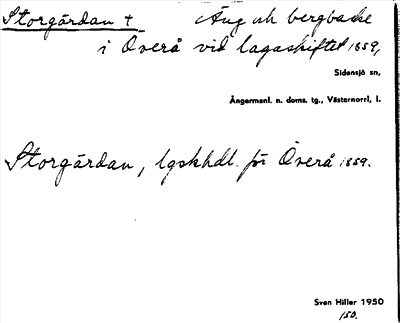 Storgårdan † Äng och bergbacke
i Överå vid lagaskiftet 1859,
Sidensjö sn,
Ångermanl. n. doms. tg., Västernorrl. l.
Storgårdan, lgskhdl. för Överå 1859.
Sven Hiller 1950
150.